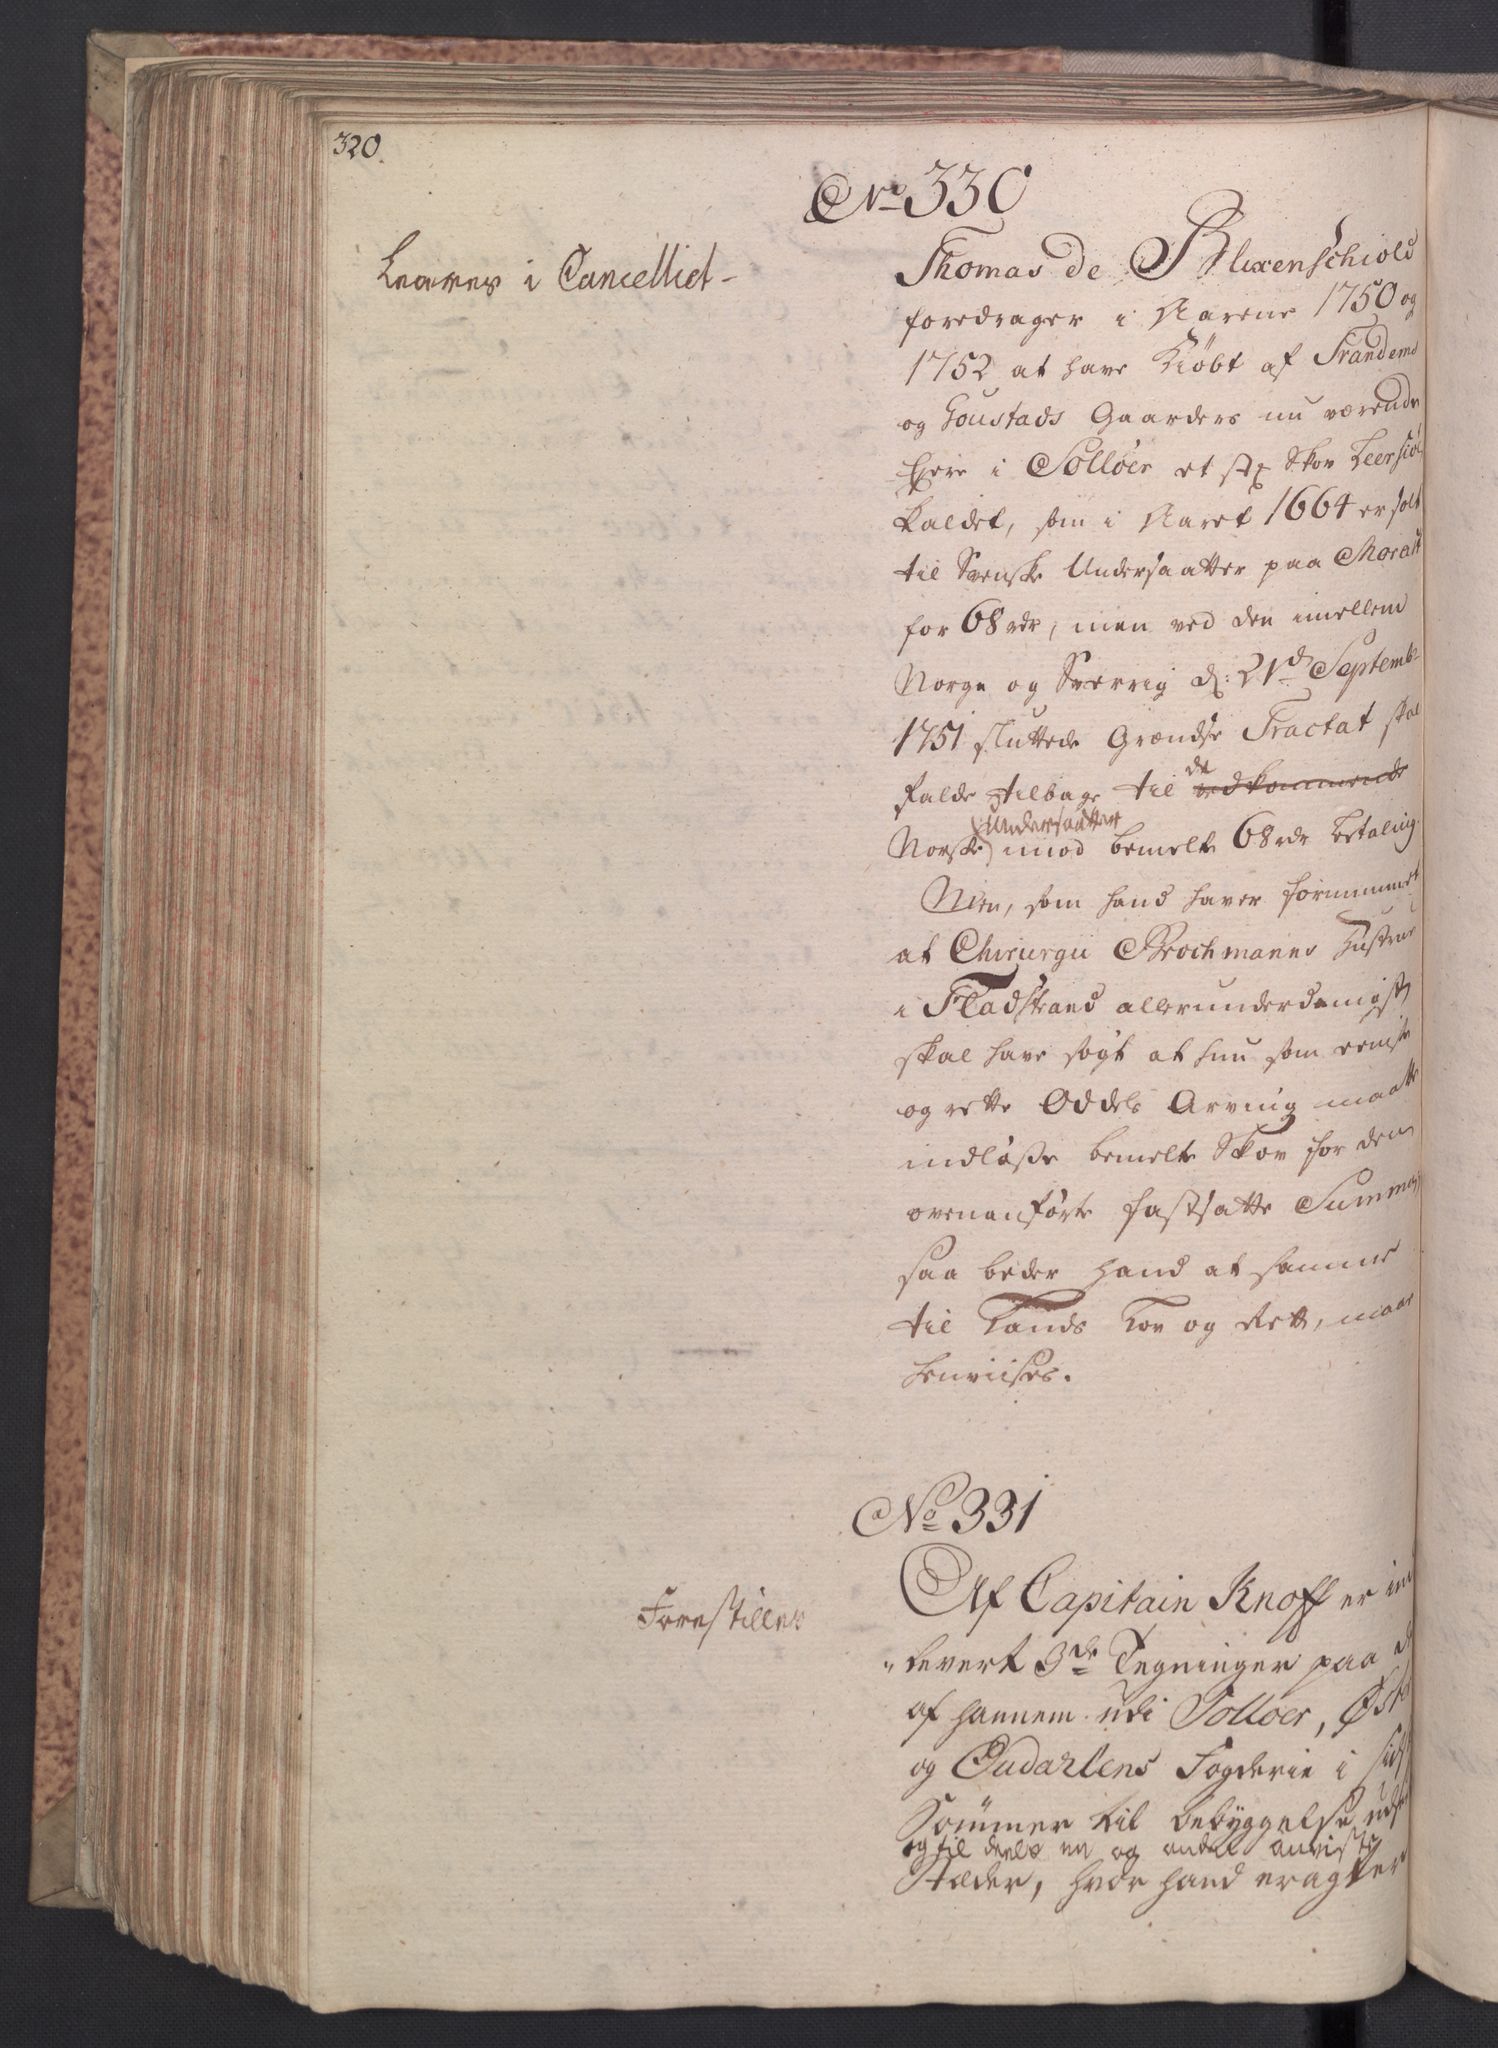 320.
No 330
Leveres i Cancelliet -
Thomas de Blixenschiold
foredrager i Aarene 1750 og
1752 at have Kiøbt af Trandems
og Goustads Gaarders nu værende
Ejere i Solløer et st: Skov Leersiøe
kaldet, som i Aaret 1664 er solt
til Svenske Undersaatter paa Morast
for 68 rdr, men ved den imellem
Norge og Sverrig d: 21de Septembr
1751 sluttede Grændse Tractat skal
falde tilbage til de vedkommende
Norske Undersaatter imod bemelte 68 rdr betaling.
Men, som hand haver fornummet
at Chirurgii Brochmanns Hustrue
i Fladstrand allerunderdanigst
skal have søgt at hun som eeniste
og rette Oddels Arving maatte
indløse bemelte Skov for den
ovenanførte fastsatte Summa,
saa beder hand at samme
til Lands Lov og Rett, maae
henviises.
No 331
Forestilles
Af Capitain Knoff er ind
leveret 3de Tegninger paa de
af hannem udi Solloer, Øster
og Oudahlens Fogderie i sidst
Sommer til bebyggelse udseet
og til deels en og anden anviiste
Stæder, hvor hand eragter